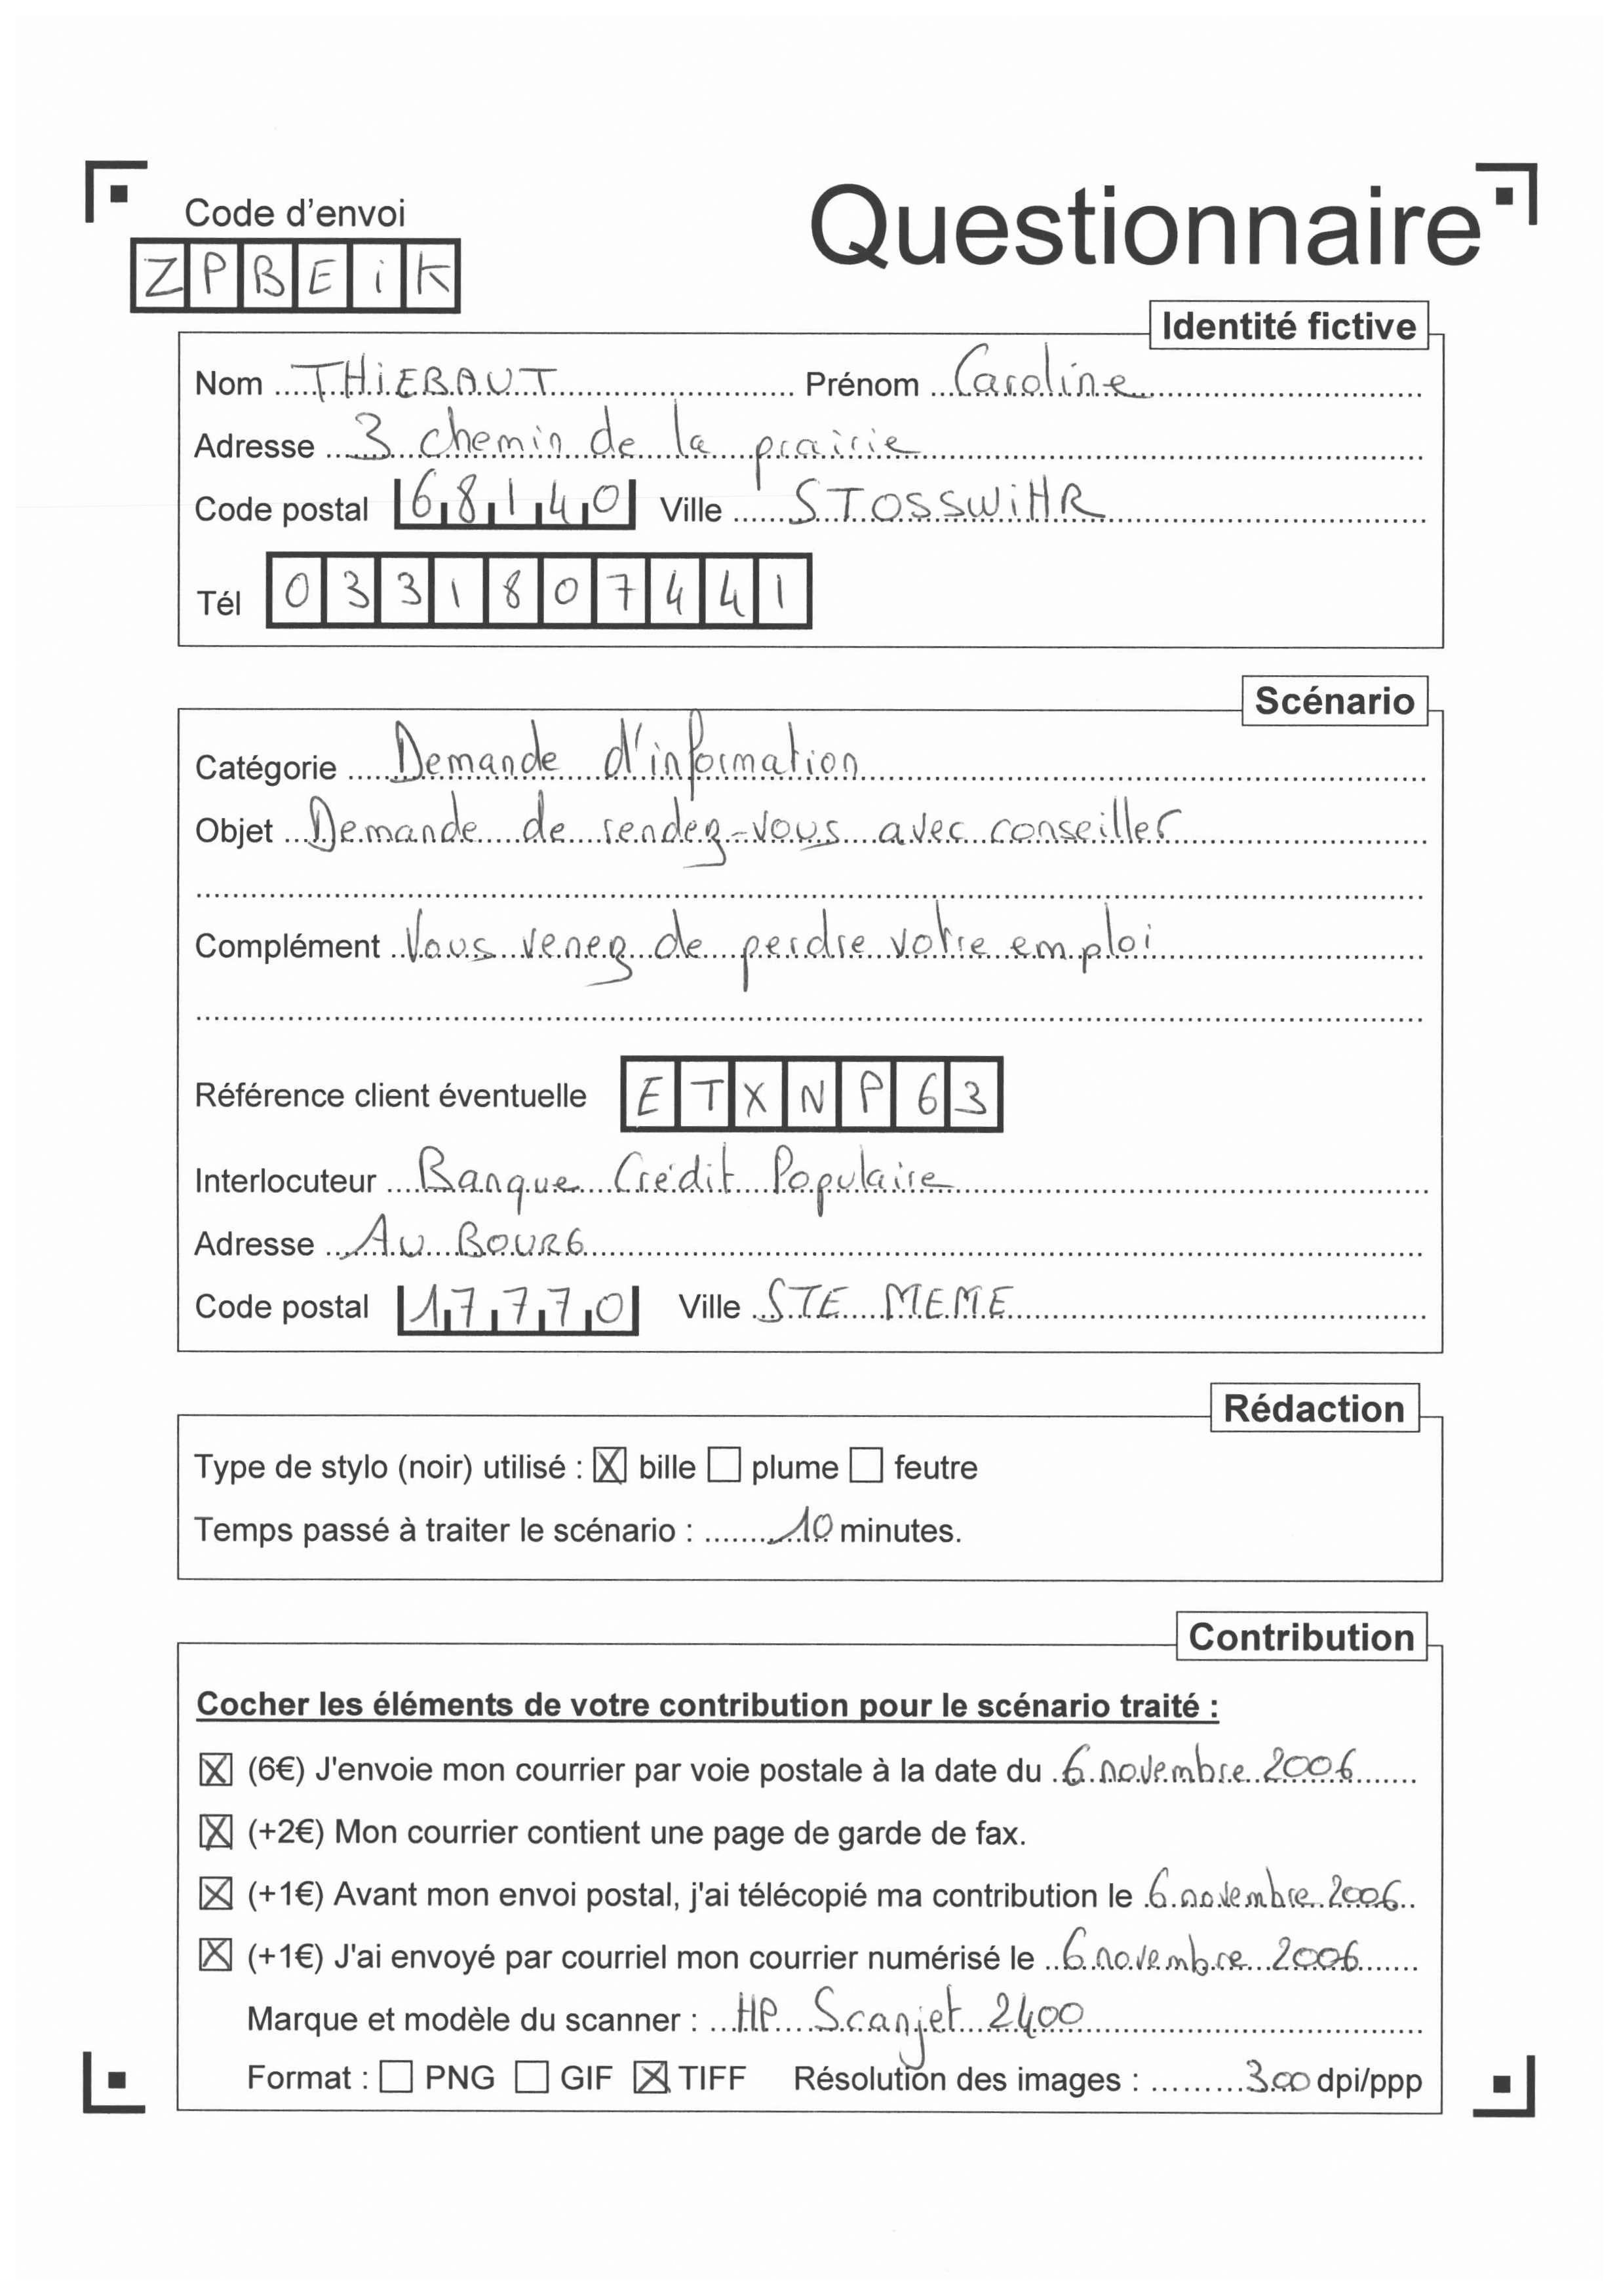 Code d'envoi
Questionnaire
ZPBEiK
Identité fictive
Nom THiEBAUT Prénom Caroline
Adresse 3 chemin de la prairie
Code postal 68140 Ville STOSSWiHR
Tél 0331807441
Scénario
Catégorie Demande d'information
Objet Demande de rendez-vous avec conseiller
Complément Vous venez de perdre votre emploi
Référence client éventuelle ETXNP63
Interlocuteur Banque Crédit Populaire
Adresse AU BOURG
Code postal 17770 Ville STE MEME
Rédaction
Type de stylo (noir) utilisé : ☒ bille ☐ plume ☐ feutre
Temps passé à traiter le scénario : 10 minutes.
Contribution
Cocher les éléments de votre contribution pour le scénario traité :
☒ (6€) J'envoie mon courrier par voie postale à la date du 6 novembre 2006
☒ (+2€) Mon courrier contient une page de garde de fax.
☒ (+1€) Avant mon envoi postal, j'ai télécopié ma contribution le 6 novembre 2006
☒ (+1€) J'ai envoyé par courriel mon courrier numérisé le 6 novembre 2006
Marque et modèle du scanner : HP Scanjet 2400
Format : ☐ PNG ☐ GIF ☒ TIFF Résolution des images : 300 dpi/ppp